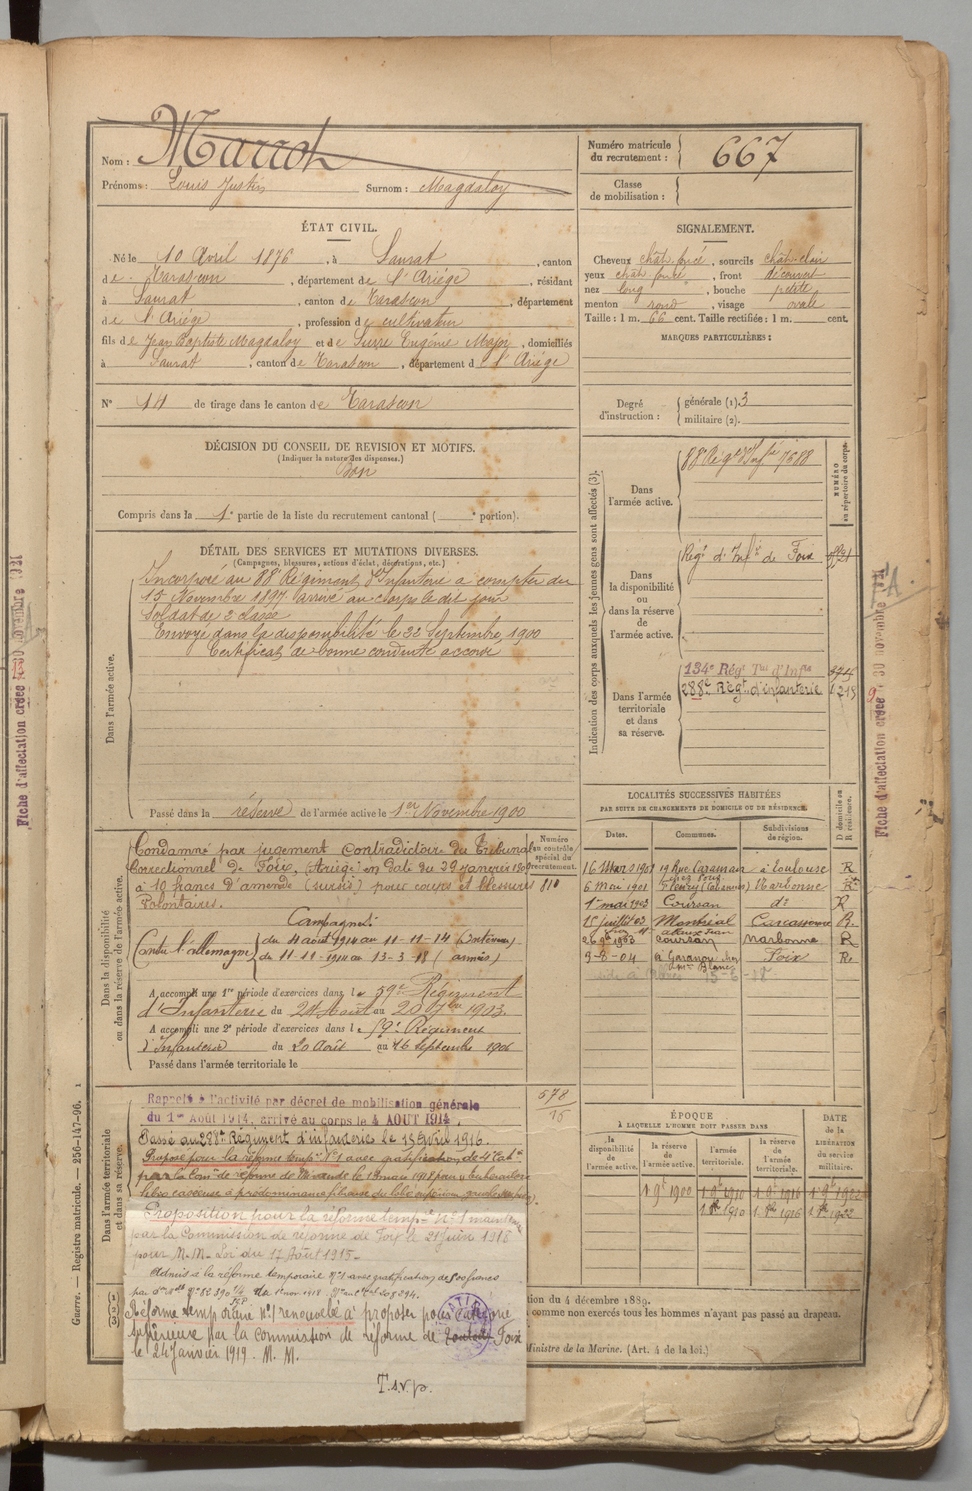 Nom : Marrot
Prénoms : Louis Justin Surnom : Magdaloy
Numéro matricule du recrutement : 667
Classe de mobilisation :
ÉTAT CIVIL.
Né le 10 Avril 1876, à Saurat, canton
de Tarascon, département de l'Ariège, résidant
à Saurat, canton de Tarascon, département
de l'Ariège, profession de cultivateur
fils de Jean Baptiste Magdaloy et de Surre Eugénie Major, domiciliés
à Saurat, canton de Tarascon, département de l'Ariége
N° 14 de tirage dans le canton de Tarascon
SIGNALEMENT.
Cheveux chât foncé, sourcils chât clair
yeux chât foncé, front découvert
nez long, bouche petite
menton rond, visage ovale
Taille : 1 m. 66 cent. Taille rectifiée : 1 m. cent.
MARQUES PARTICULIÈRES :
Degré d'instruction : générale (1). 3
militaire (2).
DÉCISION DU CONSEIL DE REVISION ET MOTIFS.
(Indiquer la nature des dispenses.)
Bon
Compris dans la 1e partie de la liste du recrutement cantonal ( e portion).
DÉTAIL DES SERVICES ET MUTATIONS DIVERSES.
(Campagnes, blessures, actions d'éclat, décorations, etc.)
Dans l'armée active.
Incorporé au 88e Régiment d'Infanterie à compter du
15 Novembre 1897 arrivé au corps le dit jour
Soldat de 2e classe
Envoyé dans la disponibilité le 22 Septembre 1900
Certificat de bonne conduite accordé
Passé dans la réserve de l'armée active le 1er Novembre 1900
Indication des corps auxquels les jeunes gens sont affectés (3).
NUMÉRO au répertoire du corps.
Dans l'armée active.
88e Régt d'Infie 7588
Dans la disponibilité ou dans la réserve de l'armée active.
Régt d'Infie de Foix
Dans l'armée territoriale et dans sa réserve.
134e Régt Tal d'Infie
288e Régt d'infanterie
Fiche d'affectation créée 30 novembre 1921
Fiche d'affectation créée 30 novembre 1921
Dans la disponibilité ou dans la réserve de l'armée active.
Numéro au contrôle spécial du recrutement.
810
Condamné par jugement Contradictoire du Tribunal
Correctionnel de Foix, (Ariège) en date du 29 janvier
à 10 francs d'amende (sursis) pour coups et blessures
volontaires.
Campagnes :
Contre l'Allemagne du 4 août 1914 au 11-11-14 (Intérieur)
du 11-12-1914 au 13-3-18 (armées)
A accompli une 1re période d'exercices dans le 59e Régiment
d'Infanterie du 24 Août au 20 7bre 1903.
A accompli une 2e période d'exercices dans le 59e Régiment
d'Infanterie du 20 Août au 16 Septembre 1906
Passé dans l'armée territoriale le
LOCALITÉS SUCCESSIVES HABITÉES
PAR SUITE DE CHANGEMENTS DE DOMICILE OU DE RÉSIDENCE.
Dates. Communes. Subdivisions de région. D domicile ou R résidence.
16 Mars 1901 19 Rue Caraman à Toulouse R
6 mai 1901 Fleury Narbonne R
1er mai 1903 Coursan do R
15 juillet 03 Montréal Carcassonne R.
1903 Coursan Narbonne R
9-8-04 à Garanou Foix R.
Dans l'armée territoriale et dans sa réserve.
578
15
Rappelé à l'activité par décret de mobilisation générale
du 1er Août 1914, arrivé au corps le 4 AOUT 1914.
Passé au 288e Régiment d'infanterie le 15 Avril 1916.
Proposé pour la réforme tempre N°1 avec gratification de 4e Cate
par la Comon de réforme de Mirande le 13 mars 1918 pour tuberculose
fibro caséeuse à prédominance fibreuse du lobe supérieur
Proposition pour la réforme tempre N° 1 maintenue
par la Commission de réforme de Foix le 21 juin 1918
pour M. M. Loi du 17 Août 1915.
Admis à la réforme temporaire N°1 avec gratification de 500 francs
Réforme temporaire n° 1 renouvelée à proposer pour catégorie
supérieure par la Commission de réforme de Foix
le 24 Janvier 1919. M. M.
T.s.v.p.
ÉPOQUE
À LAQUELLE L'HOMME DOIT PASSER DANS
la disponibilité de l'armée active. la réserve de l'armée active. l'armée territoriale. la réserve de l'armée territoriale.
DATE de la LIBÉRATION du service militaire.
1 9bre 1900 1 9bre 1910 1 9bre 1916 1 9bre 1922
1 8bre 1910 1 8bre 1916 1 8bre 1922
tion du 4 décembre 1889.
comme non exercés tous les hommes n'ayant pas passé au drapeau.
Ministre de la Marine. (Art. 4 de la loi.)
Guerre. — Registre matricule. — 256-147-96. 1